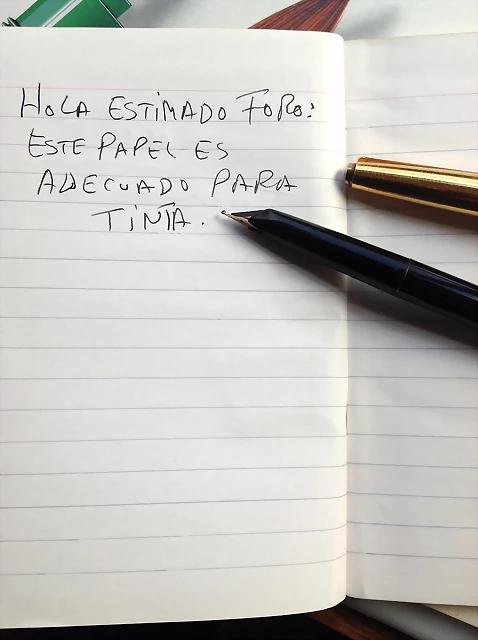 HOLA ESTIMADO FORO:
ESTE PAPEL ES
ADECUADO PARA
TINTA.